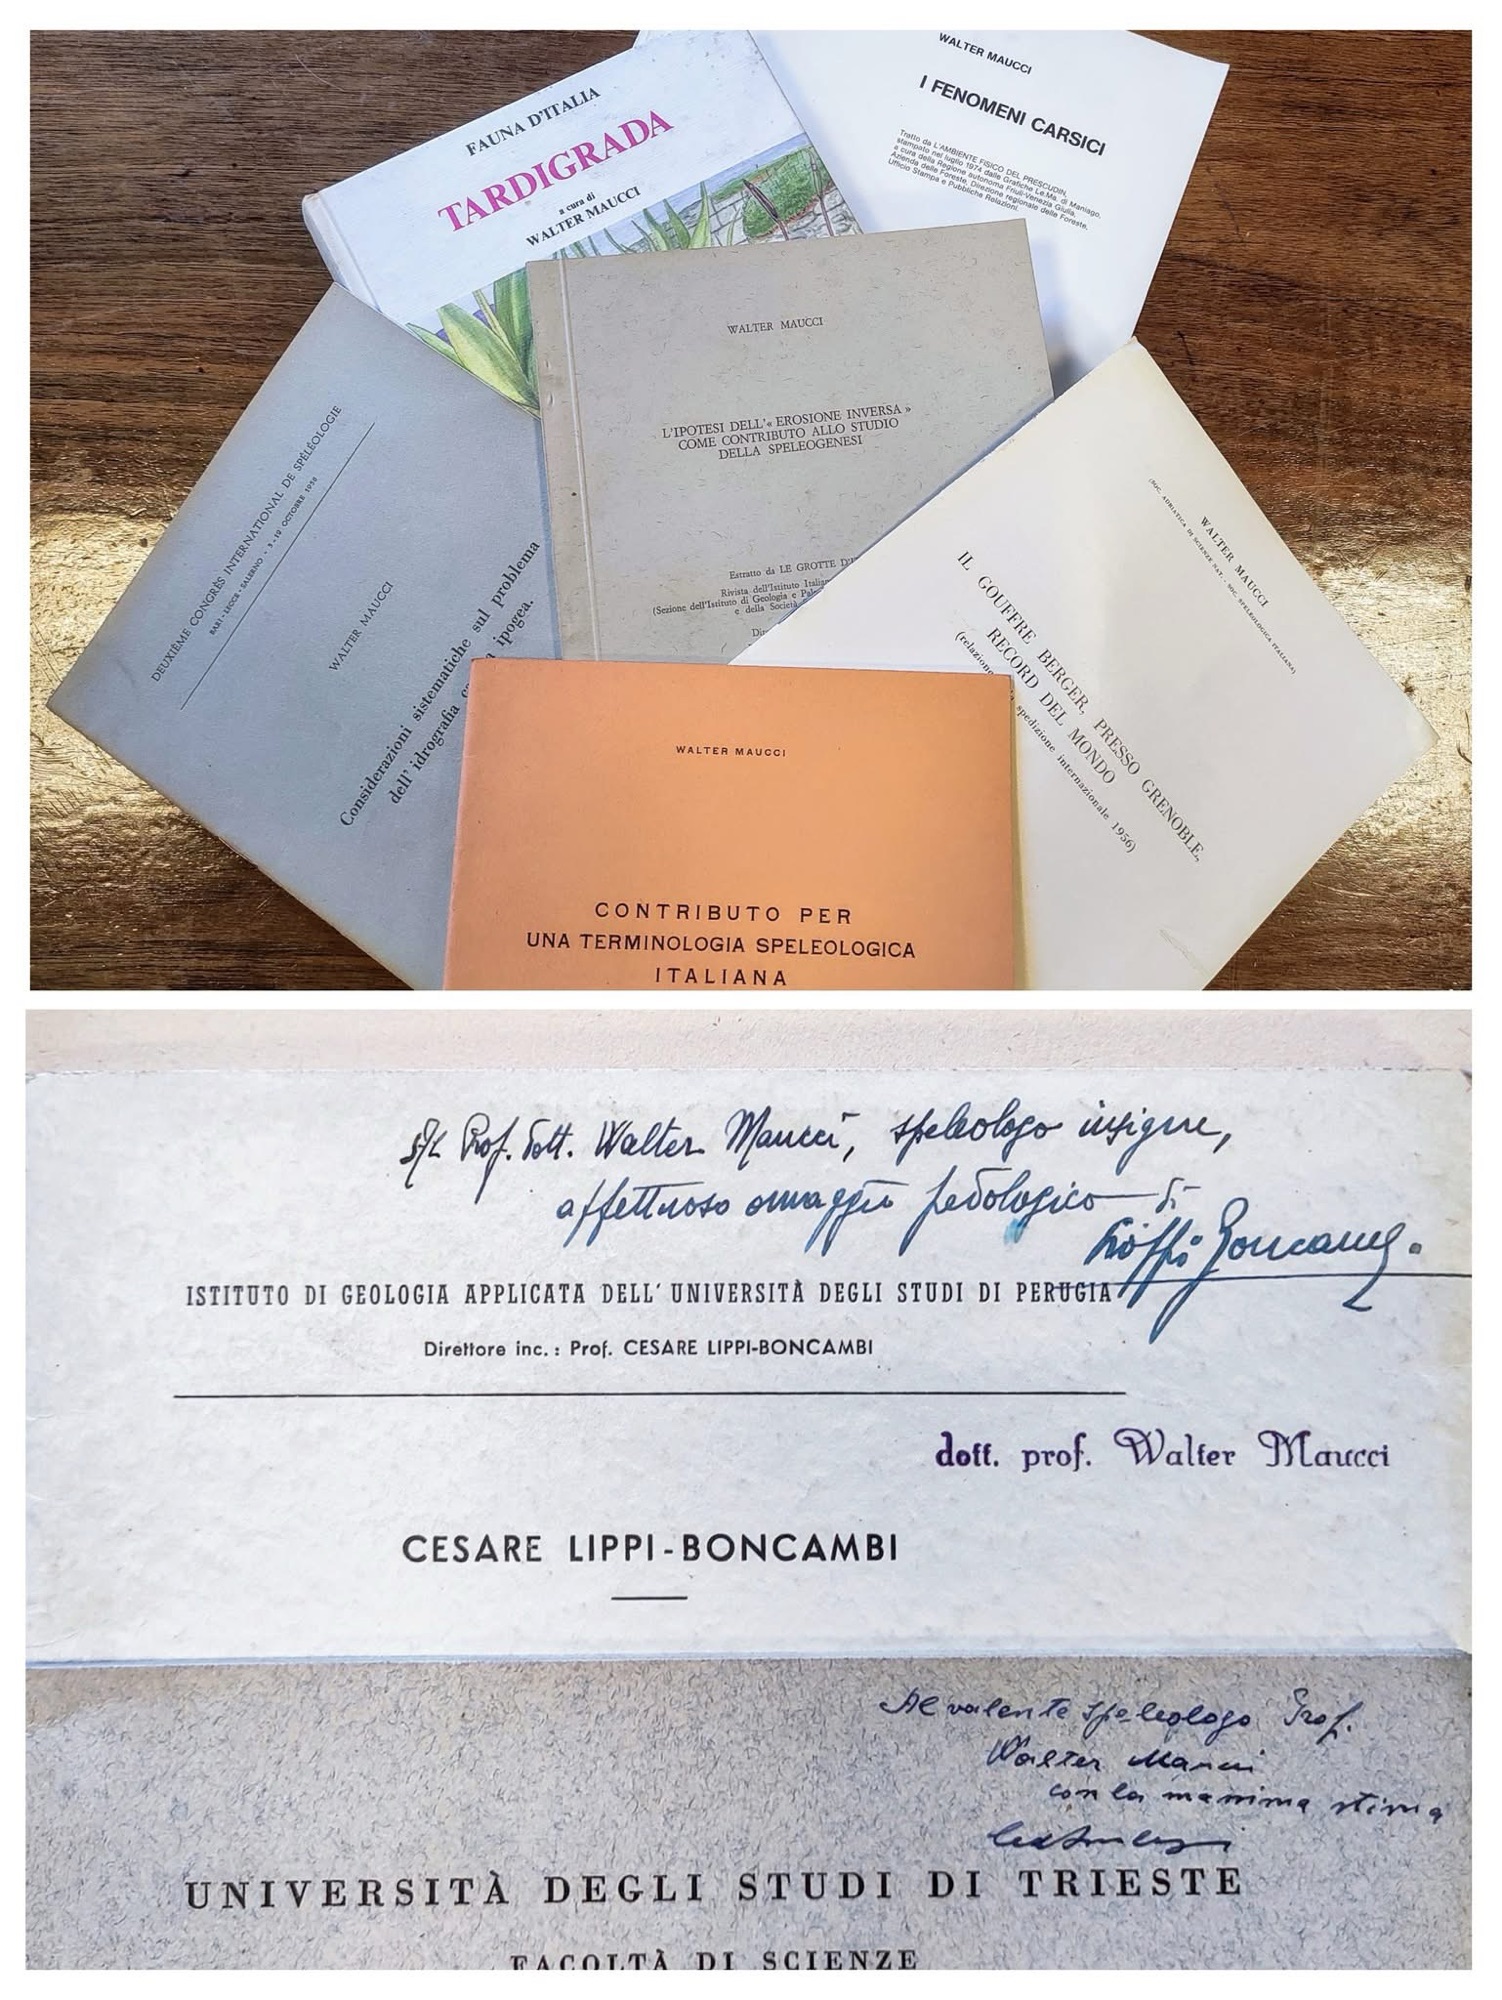 FAUNA D'ITALIA
TARDIGRADA
a cura di
WALTER MAUCCI
WALTER MAUCCI
I FENOMENI CARSICI
Tratto da L'AMBIENTE FISICO DEL PRESCUDIN,
stampato nel luglio 1974 dalle Grafiche Le.Ma. di Maniago,
a cura della Regione autonoma Friuli-Venezia Giulia,
Azienda delle Foreste, Direzione regionale delle Foreste,
Ufficio Stampa e Pubbliche Relazioni.
DEUXIÈME CONGRÈS INTERNATIONAL DE SPÉLÉOLOGIE
BARI - LECCE - SALERNO - 5-12 OCTOBRE 1958
WALTER MAUCCI
Considerazioni sistematiche sul problema
dell'idrografia ipogea.
WALTER MAUCCI
L'IPOTESI DELL'« EROSIONE INVERSA »
COME CONTRIBUTO ALLO STUDIO
DELLA SPELEOGENESI
Estratto da LE GROTTE D'I
Rivista dell'Istituto Italian
(Sezione dell'Istituto di Geologia e Pale
e della Società
Dir
WALTER MAUCCI
(SOC. ADRIATICA DI SCIENZE NAT. - SOC. SPELEOLOGICA ITALIANA)
IL GOUFFRE BERGER, PRESSO GRENOBLE,
RECORD DEL MONDO
(relazione spedizione internazionale 1956)
WALTER MAUCCI
CONTRIBUTO PER
UNA TERMINOLOGIA SPELEOLOGICA
ITALIANA
Prof. Dott. Walter Maucci, speleologo insigne,
affettuoso omaggio pedologico di
Lippi Boncambi.
ISTITUTO DI GEOLOGIA APPLICATA DELL'UNIVERSITÀ DEGLI STUDI DI PERUGIA
Direttore inc.: Prof. CESARE LIPPI-BONCAMBI
dott. prof. Walter Maucci
CESARE LIPPI-BONCAMBI
Al valente speleologo Prof.
Walter Maucci
con la massima stima
UNIVERSITÀ DEGLI STUDI DI TRIESTE
FACOLTÀ DI SCIENZE